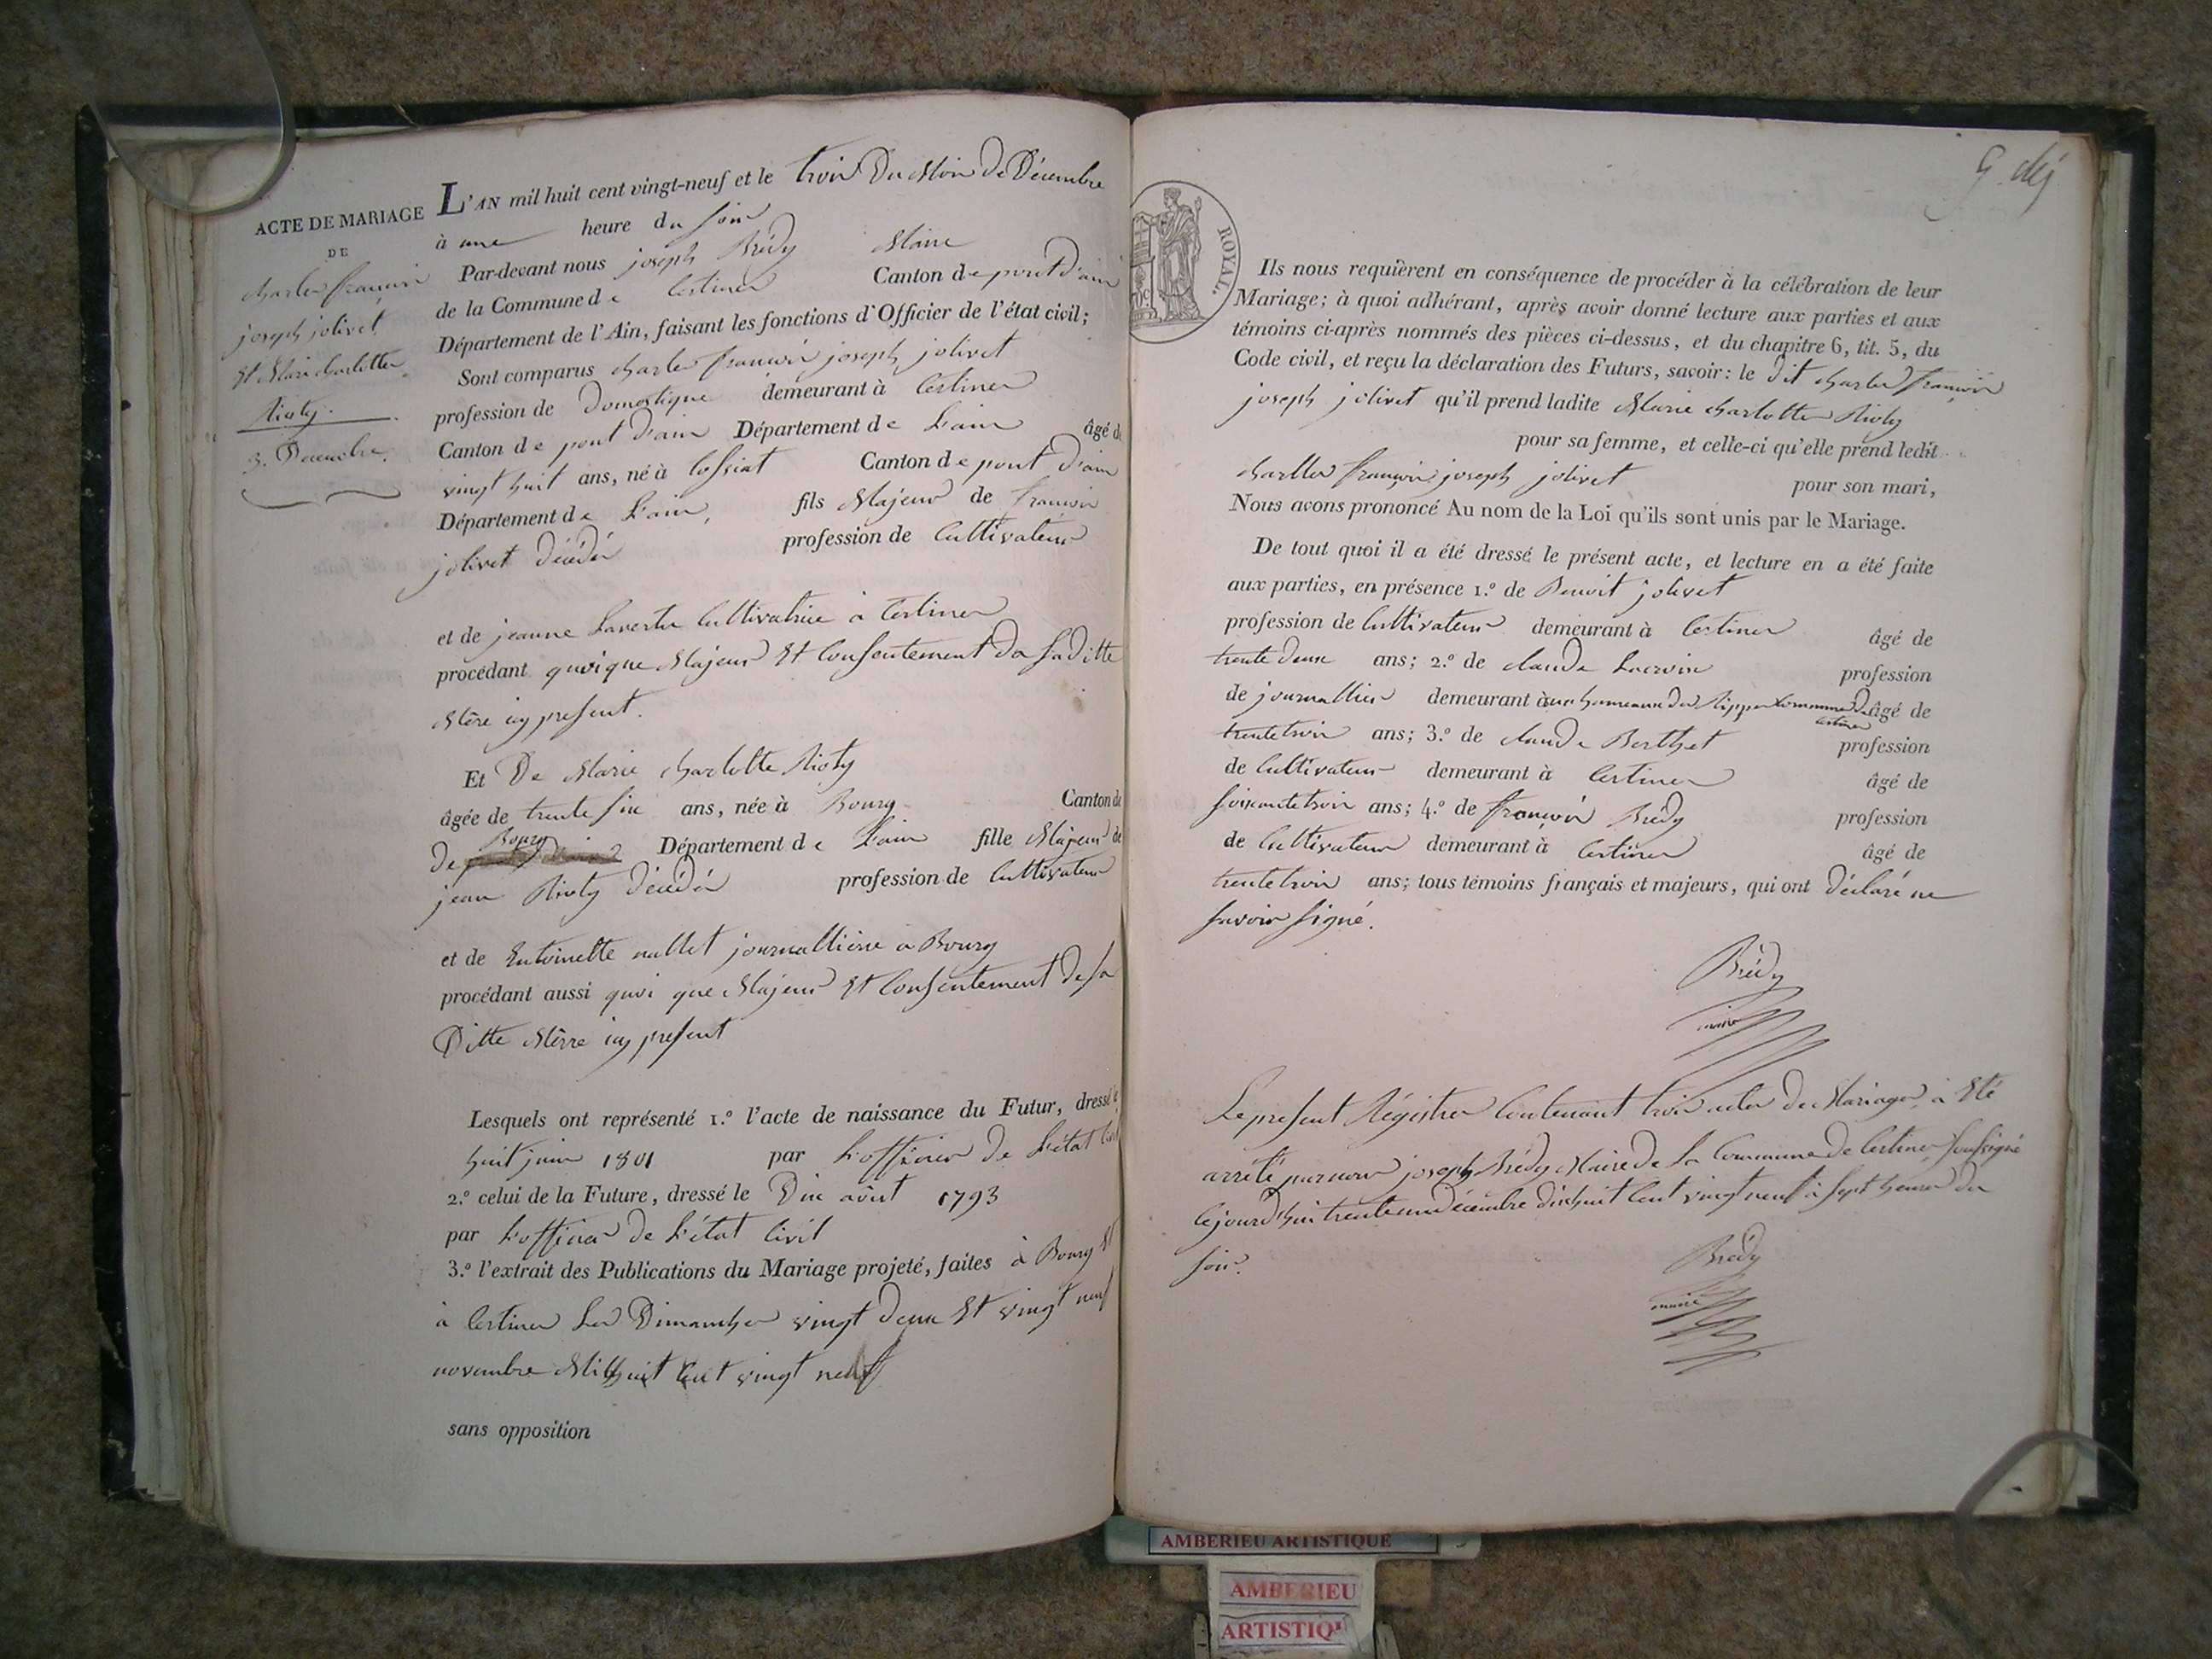 ACTE DE MARIAGE
DE
charles françois
joseph jolivet
Et Marie charlotte
Rioty.
3. Décembre.
L'AN mil huit cent vingt-neuf et le trois Du Mois De Décembre
à une heure du soir
Par-devant nous joseph Brédy Maire
de la Commune de Certines Canton de pont D'ain
Département de l'Ain, faisant les fonctions d'Officier de l'état civil;
Sont comparus charles françois joseph jolivet
profession de Domestique demeurant à Certines
Canton de pont D'ain Département de L'ain âgé de
vingt huit ans, né à Canton de pont D'ain
Département de L'ain, fils Majeur de françois
jolivet Décédé profession de Cultivateur
et de jeanne Cultivatrice à Certines
procédant quoique Majeur Et Consentement Da sa Ditte
Mère icy présent.
Et De Marie charlotte Rioty
âgée de trente six ans, née à Bourg Canton de
De Bourg Département de L'ain fille Majeur de
jean Rioty Décédé profession de Cultivateur
et de Entoinette nallet journallière à Bourg
procédant aussi quoi que Majeur Et Consentement De sa
Ditte Mèrre icy présent
Lesquels ont représenté 1.º l'acte de naissance du Futur, dressé le
huit juin 1801 par L'officier de L'état Civil
2.º celui de la Future, dressé le Dix août 1793
par L'officier de L'état Civil
3.º l'extrait des Publications du Mariage projeté, faites à Bourg Et
à Certines Les Dimanches vingt Deux Et vingt neuf
novembre Mil huit Cent vingt neuf
sans opposition
ROYAL.
Ils nous requièrent en conséquence de procéder à la célébration de leur
Mariage; à quoi adhérant, après avoir donné lecture aux parties et aux
témoins ci-après nommés des pièces ci-dessus, et du chapitre 6, tit. 5, du
Code civil, et reçu la déclaration des Futurs, savoir: le Dit charles françois
joseph jolivet qu'il prend ladite Marie charlotte Rioty
pour sa femme, et celle-ci qu'elle prend ledit
charlles françois joseph jolivet pour son mari,
Nous avons prononcé Au nom de la Loi qu'ils sont unis par le Mariage.
De tout quoi il a été dressé le présent acte, et lecture en a été faite
aux parties, en présence 1.º de Benoit jolivet
profession de Cultivateur demeurant à Certines âgé de
trente Deux ans; 2.º de claude Lacroix profession
de journallier demeurant à aux hameaux Des Rippes Commune De Certines âgé de
trente trois ans; 3.º de claude Berthet profession
de Cultivateur demeurant à Certines âgé de
soixante trois ans; 4.º de françois Brédy profession
de Cultivateur demeurant à Certines âgé de
trente trois ans; tous témoins français et majeurs, qui ont Déclaré ne
savoir signé.
Brédy
maire
Le présent Régistre Contenant trois actes De Mariages à Eté
arrêté par nous joseph Brédy Maire De La Commune De Certines soussigné
Cejourd'hui trente un décembre dixhuit Cent vingt neuf à sept heures Du
soir.
Brédy
maire
AMBERIEU ARTISTIQUE
AMBERIEU
ARTISTIQ